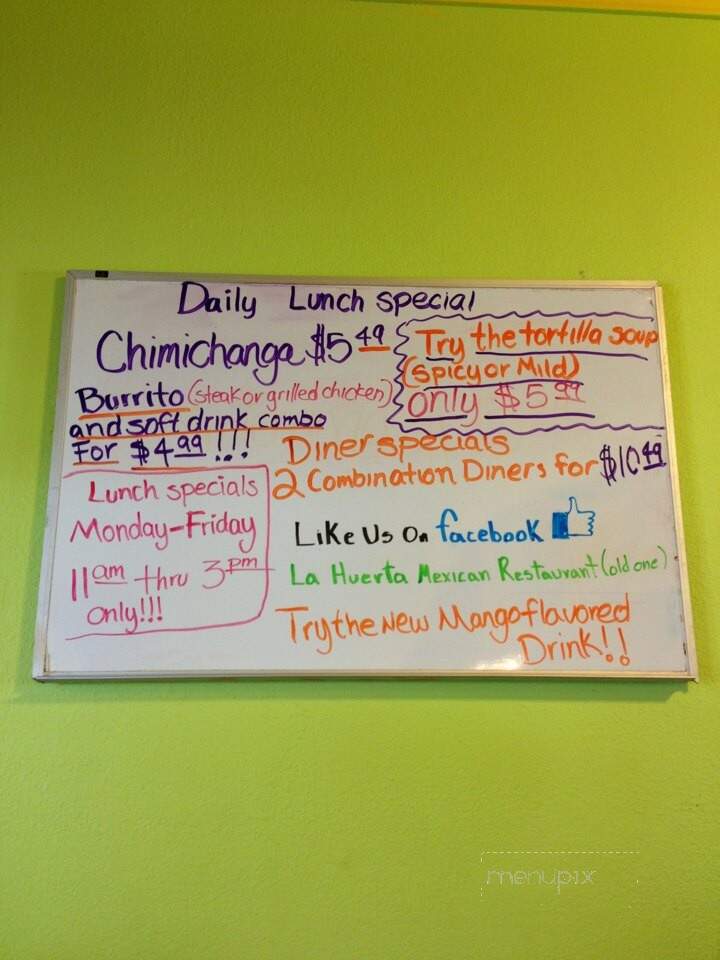 Daily Lunch special
Chimichanga $5 49
Burrito (steak or grilled chicken)
and soft drink combo
For $4 99 !!!
Try the tortilla soup
(Spicy or Mild)
only $5 99
Diner specials
2 Combination Diners for $10 49
Lunch specials
Monday-Friday
11 am thru 3 pm
only!!!
Like Us On facebook
La Huerta Mexican Restaurant (old one)
Try the New Mango flavored
Drink!!
menupix